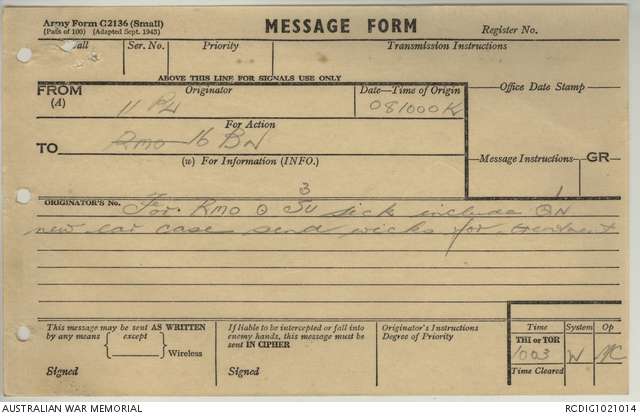 Army Form C2136 (Small)
(Pads of 100) (Adapted Sept. 1943)
MESSAGE FORM
Register No.
Call
Ser. No.
Priority
Transmission Instructions
ABOVE THIS LINE FOR SIGNALS USE ONLY
FROM
(A)
Originator
11
Date—Time of Origin
081000K
Office Date Stamp
For Action
TO
Rmo 16 BN
(w) For Information (INFO.)
Message Instructions
GR
ORIGINATOR'S No.
3
For Rmo sick include
new ear case send wicks for treatment
This message may be sent AS WRITTEN
by any means
except
Wireless
Signed
If liable to be intercepted or fall into
enemy hands, this message must be
sent IN CIPHER
Signed
Originator's Instructions
Degree of Priority
Time
System
Op
THI or TOR
1003
W
Time Cleared
AUSTRALIAN WAR MEMORIAL
RCDIG1021014